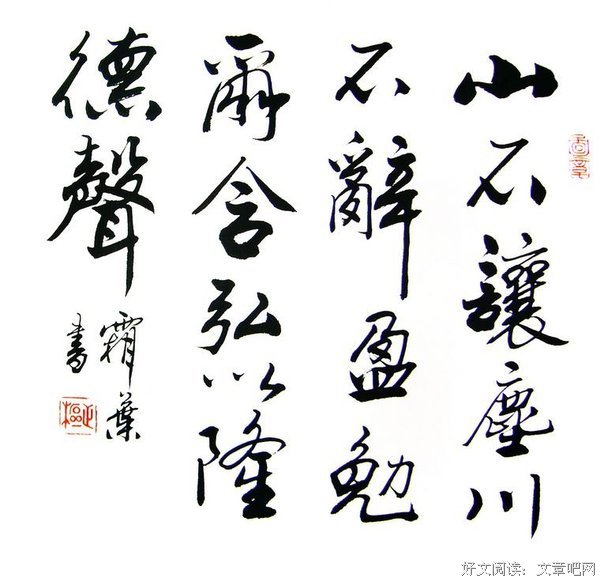 山不讓塵川
不辭盈勉
爾含弘以隆
德聲
霜葉
書
好文阅读：文章吧网